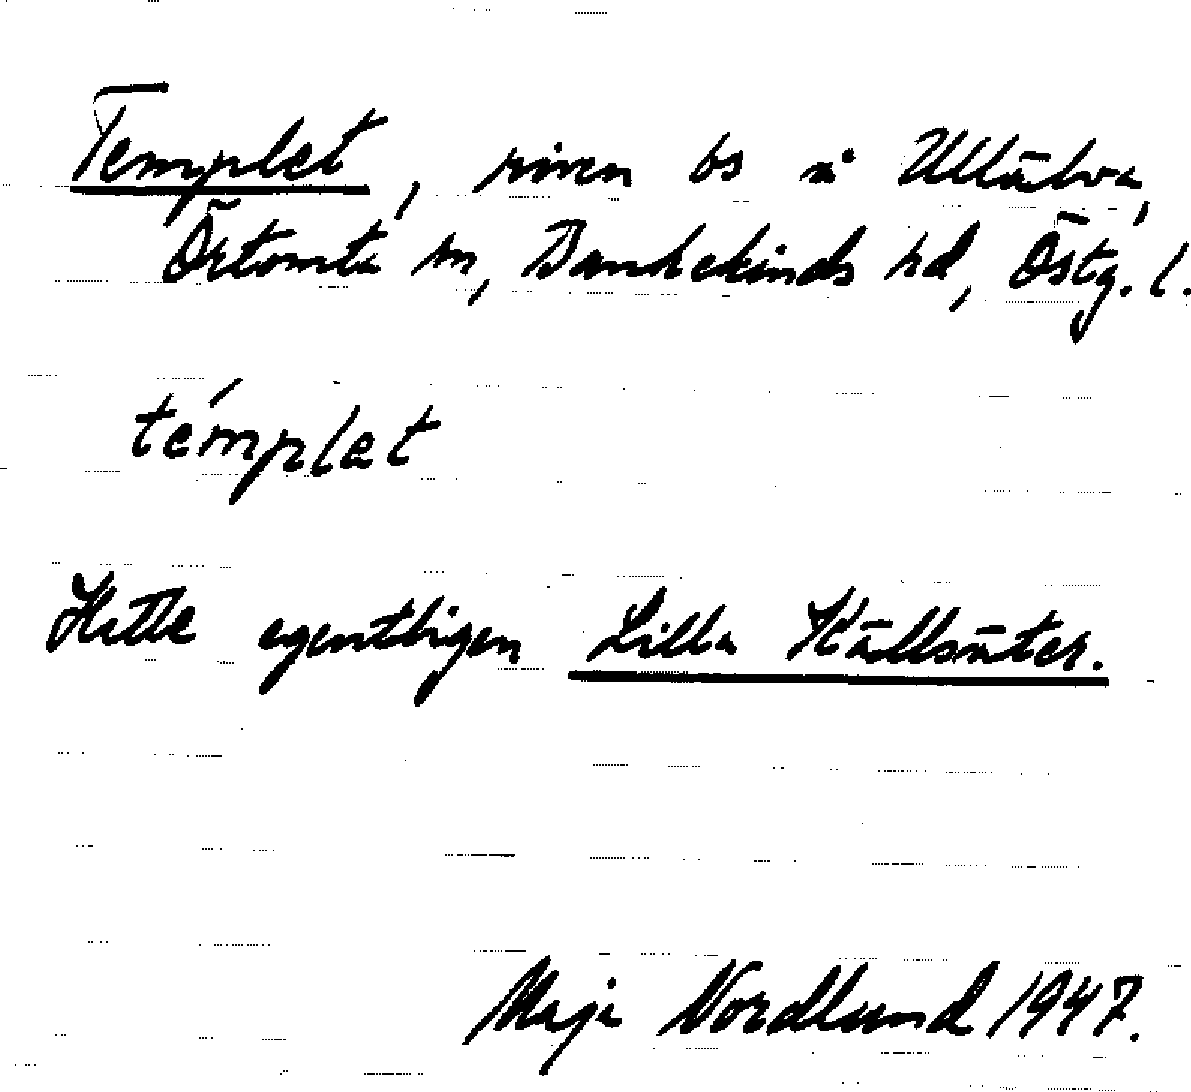 Templet, riven bs å Ullälva,
Örtomta sn, Bankekinds hd, Östg. l.
témplat
Hette egentligen Lilla Källsäter.
Maja Nordlund 1947.